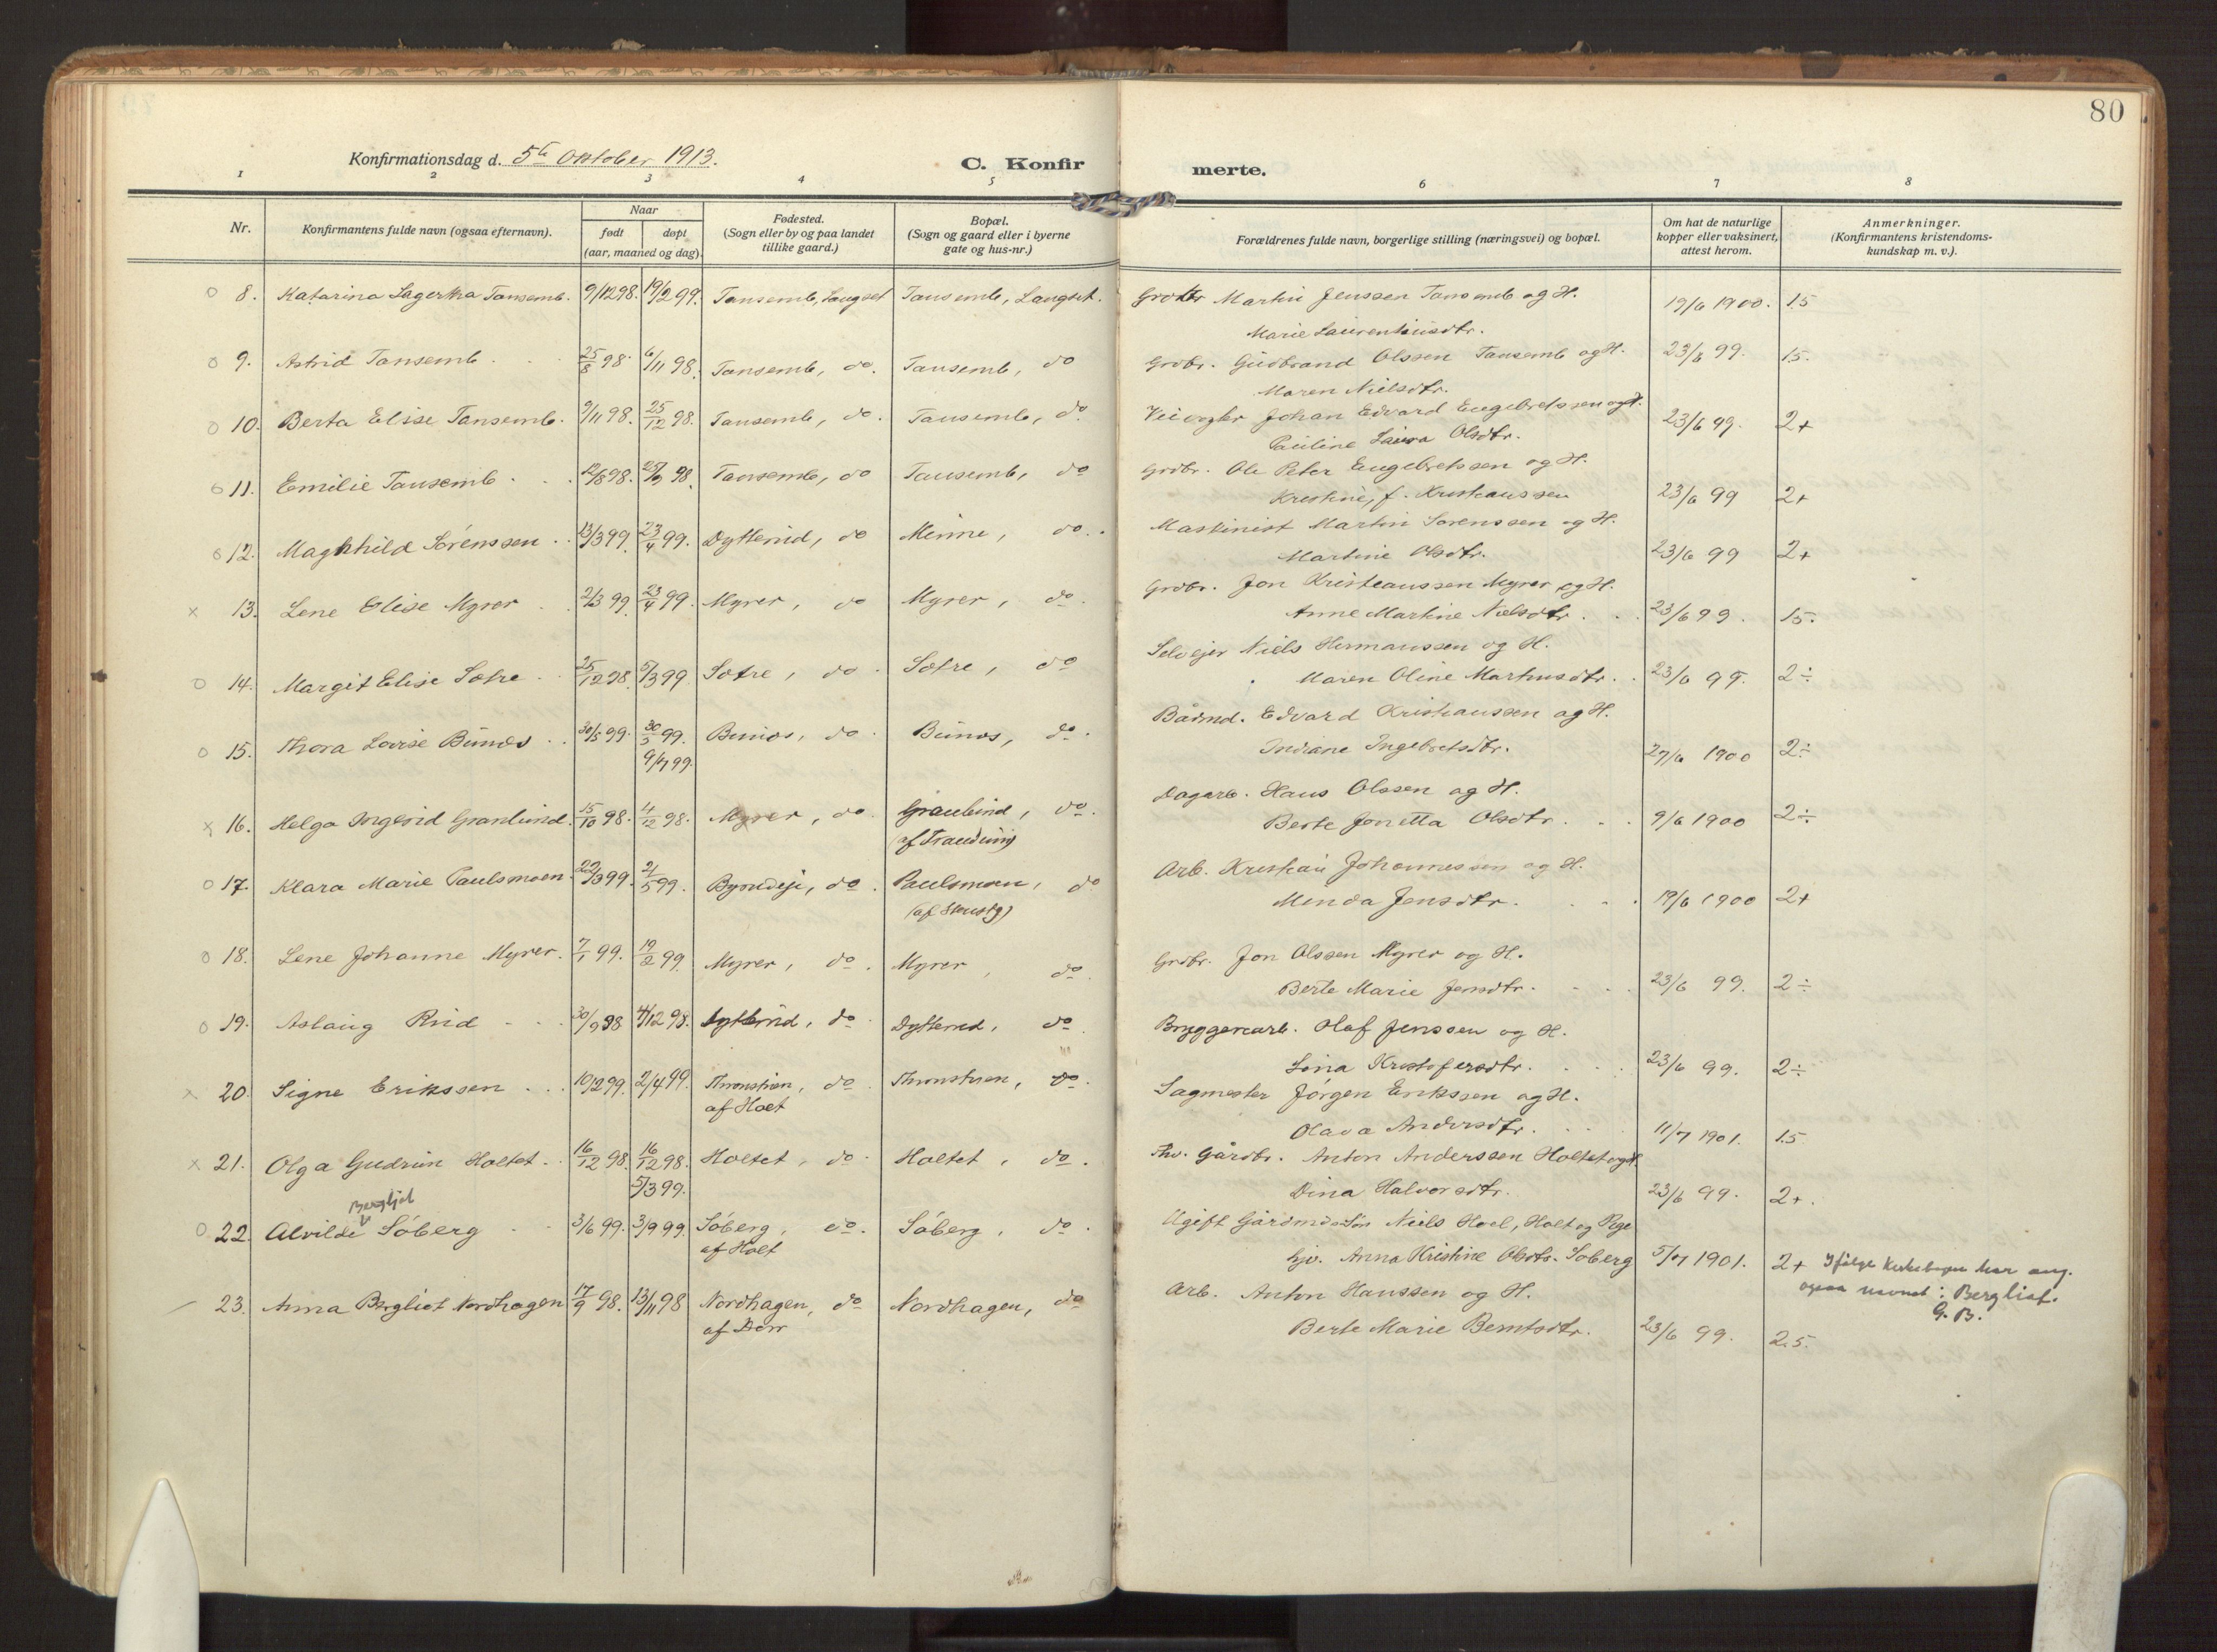 80
Konfirmationsdag d. 5te Oktober 1913.
C. Konfirmerte.
1 2 3 4 5 6 7 8
Nr.
Konfirmantens fulde navn (ogsaa efternavn).
Naar
født døpt
(aar, maaned og dag).
Fødested.
(Sogn eller by og paa landet
tillike gaard.)
Bopæl.
(Sogn og gaard eller i byerne
gate og hus-nr.)
Forældrenes fulde navn, borgerlige stilling (næringsvei) og bopæl.
Om hat de naturlige
kopper eller vaksinert,
attest herom.
Anmerkninger.
(Konfirmantens kristendoms-
kundskap m. v.).
8. Katarina Lagertha Tansemb. 9/12 98. 19/2 99. Tansemb, Langset Tansemb, Langset. Grdbr Martin Jenssen Tansemb og H. 19/6 1900. 1.5
Marie Laurentiusdtr.
9. Astrid Tansemb 25/8 98 6/11 98. Tansemb, do. Tansemb, do Grdbr. Gudbrand Olssen Tansemb og H. 23/6 99. 1.5.
Maren Nielsdtr.
10. Berta Elise Tansemb. 9/11 98. 25/12 98. Tansemb, do. Tansemb, do Veivogter Johan Edvard Engebretssen og H. 23/6 99. 2+
Pauline Laura Olsdtr.
11. Emilie Tansemb 12/8 98. 25/9 98. Tansemb, do Tansemb, do Grdbr. Ole Peter Engebretssen og H.
Kristine, f. Kristianssen 23/6 99 2+
12. Maghhild Sørenssen 13/3 99. 23/4 99. Dytterud, do Minne, do. Maskinist Martin Sørenssen og H.
Martine Olsdtr. 23/6 99 2+
13. Lene Elise Myrer 2/3 99. 23/4 99. Myrer, do Myrer, do. Grdbr. Jon Kristianssen Myrer og H.
Anne Martine Nielsdtr. 23/6 99. 1.5.
14. Margit Elise Sætre 25/12 98. 5/3 99. Sætre, do. Sætre, do Selvejer Niels Hermanssen og H.
Maren Oline Martinusdtr. 23/6 99. 2÷
15. Thora Lovise Bunæs 30/5 99. 30/5 99. Bunæs, do. Bunæs, do. Baadmd. Edvard Kristianssen og H.
9/7 99. Indiane Ingebretsdtr. 27/6 1900 2÷
16. Helga Ingerid Granlund. 15/10 98. 4/12 98. Myrer, do. Granlund, do. Dagarb. Hans Olssen og H.
Berte Jonetta Olsdtr. 9/6 1900 2÷
17. Klara Marie Paulsmoen. 22/3 99. 2/5 99. Paulsmoen, do Arb. Kristian Johannessen og H.
Menda Jensdtr. 19/6 1900 2+
18. Lene Johanne Myrer. 7/1 99. 19/2 99. Myrer, do. Myrer, do. Grdbr. Jon Olssen Myrer og H.
Berte Marie Jensdtr. 23/6 99. 2÷
19. Aslaug Rud 30/9 98 4/12 98. Dytterud, do Dytterud, do. Bryggerearb. Olaf Jenssen og H.
Lina Kristofersdtr. 23/6 99. 2÷
20. Signe Erikssen 10/2 99. 2/4 99. Thronstuen, do. Thronstuen, do. Sagmester Jørgen Erikssen og H.
af Holt Olava Andersdtr. 11/7 1901. 1.5
21. Olga Gudrun Holtet. 16/12 98. 16/12 98. Holtet, do Holtet, do. Fhv. Gårdbr. Anton Anderssen Holtet og H.
5/3 99. Dina Halvorsdtr. 23/6 99. 2+.
Bergljot
22. Alvilde Søberg 3/6 99. 3/9 99. Søberg, do. Søberg, do. Ugift Gårdmds Søn Niels Hoel, Holt og Pige
af Holt Anna Kristine Olsdtr. Søberg 5/7 1901. 2+ Ifølge Kirkebogen har ang.
ogsaa navnet: Bergliot.
G. B.
23. Anna Bergliot Nordhagen 17/9 98. 13/11 98 Nordhagen, do Nordhagen, do Arb. Anton Hanssen og H.
af Dorr Berte Marie Berntsdtr. 23/6 99. 2.5.